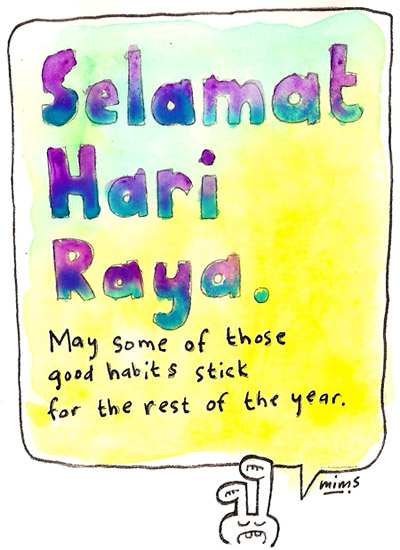 Selamat
Hari
Raya.
May some of those
good habits stick
for the rest of the year.
mims